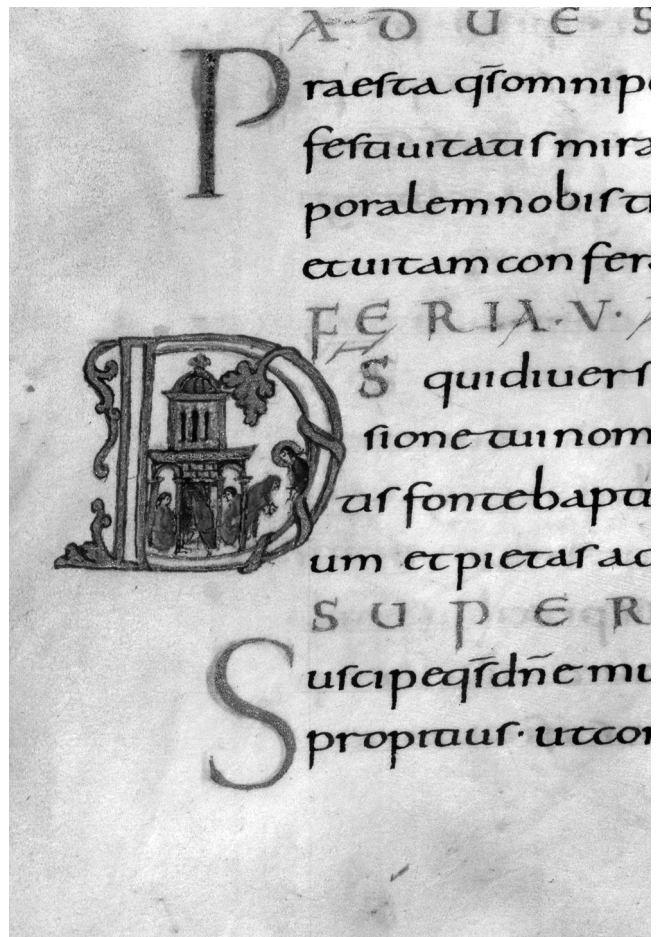 AD UES
Praesta qs omnip
festiuitatis mira
poralem nobis tr
et uitam confera
FERIA · V · A
DS qui diuers
sione tui nom
tis fonte bapti
um et pietas ac
SUPER
Suscipe qs dñe mu
propitius · ut con